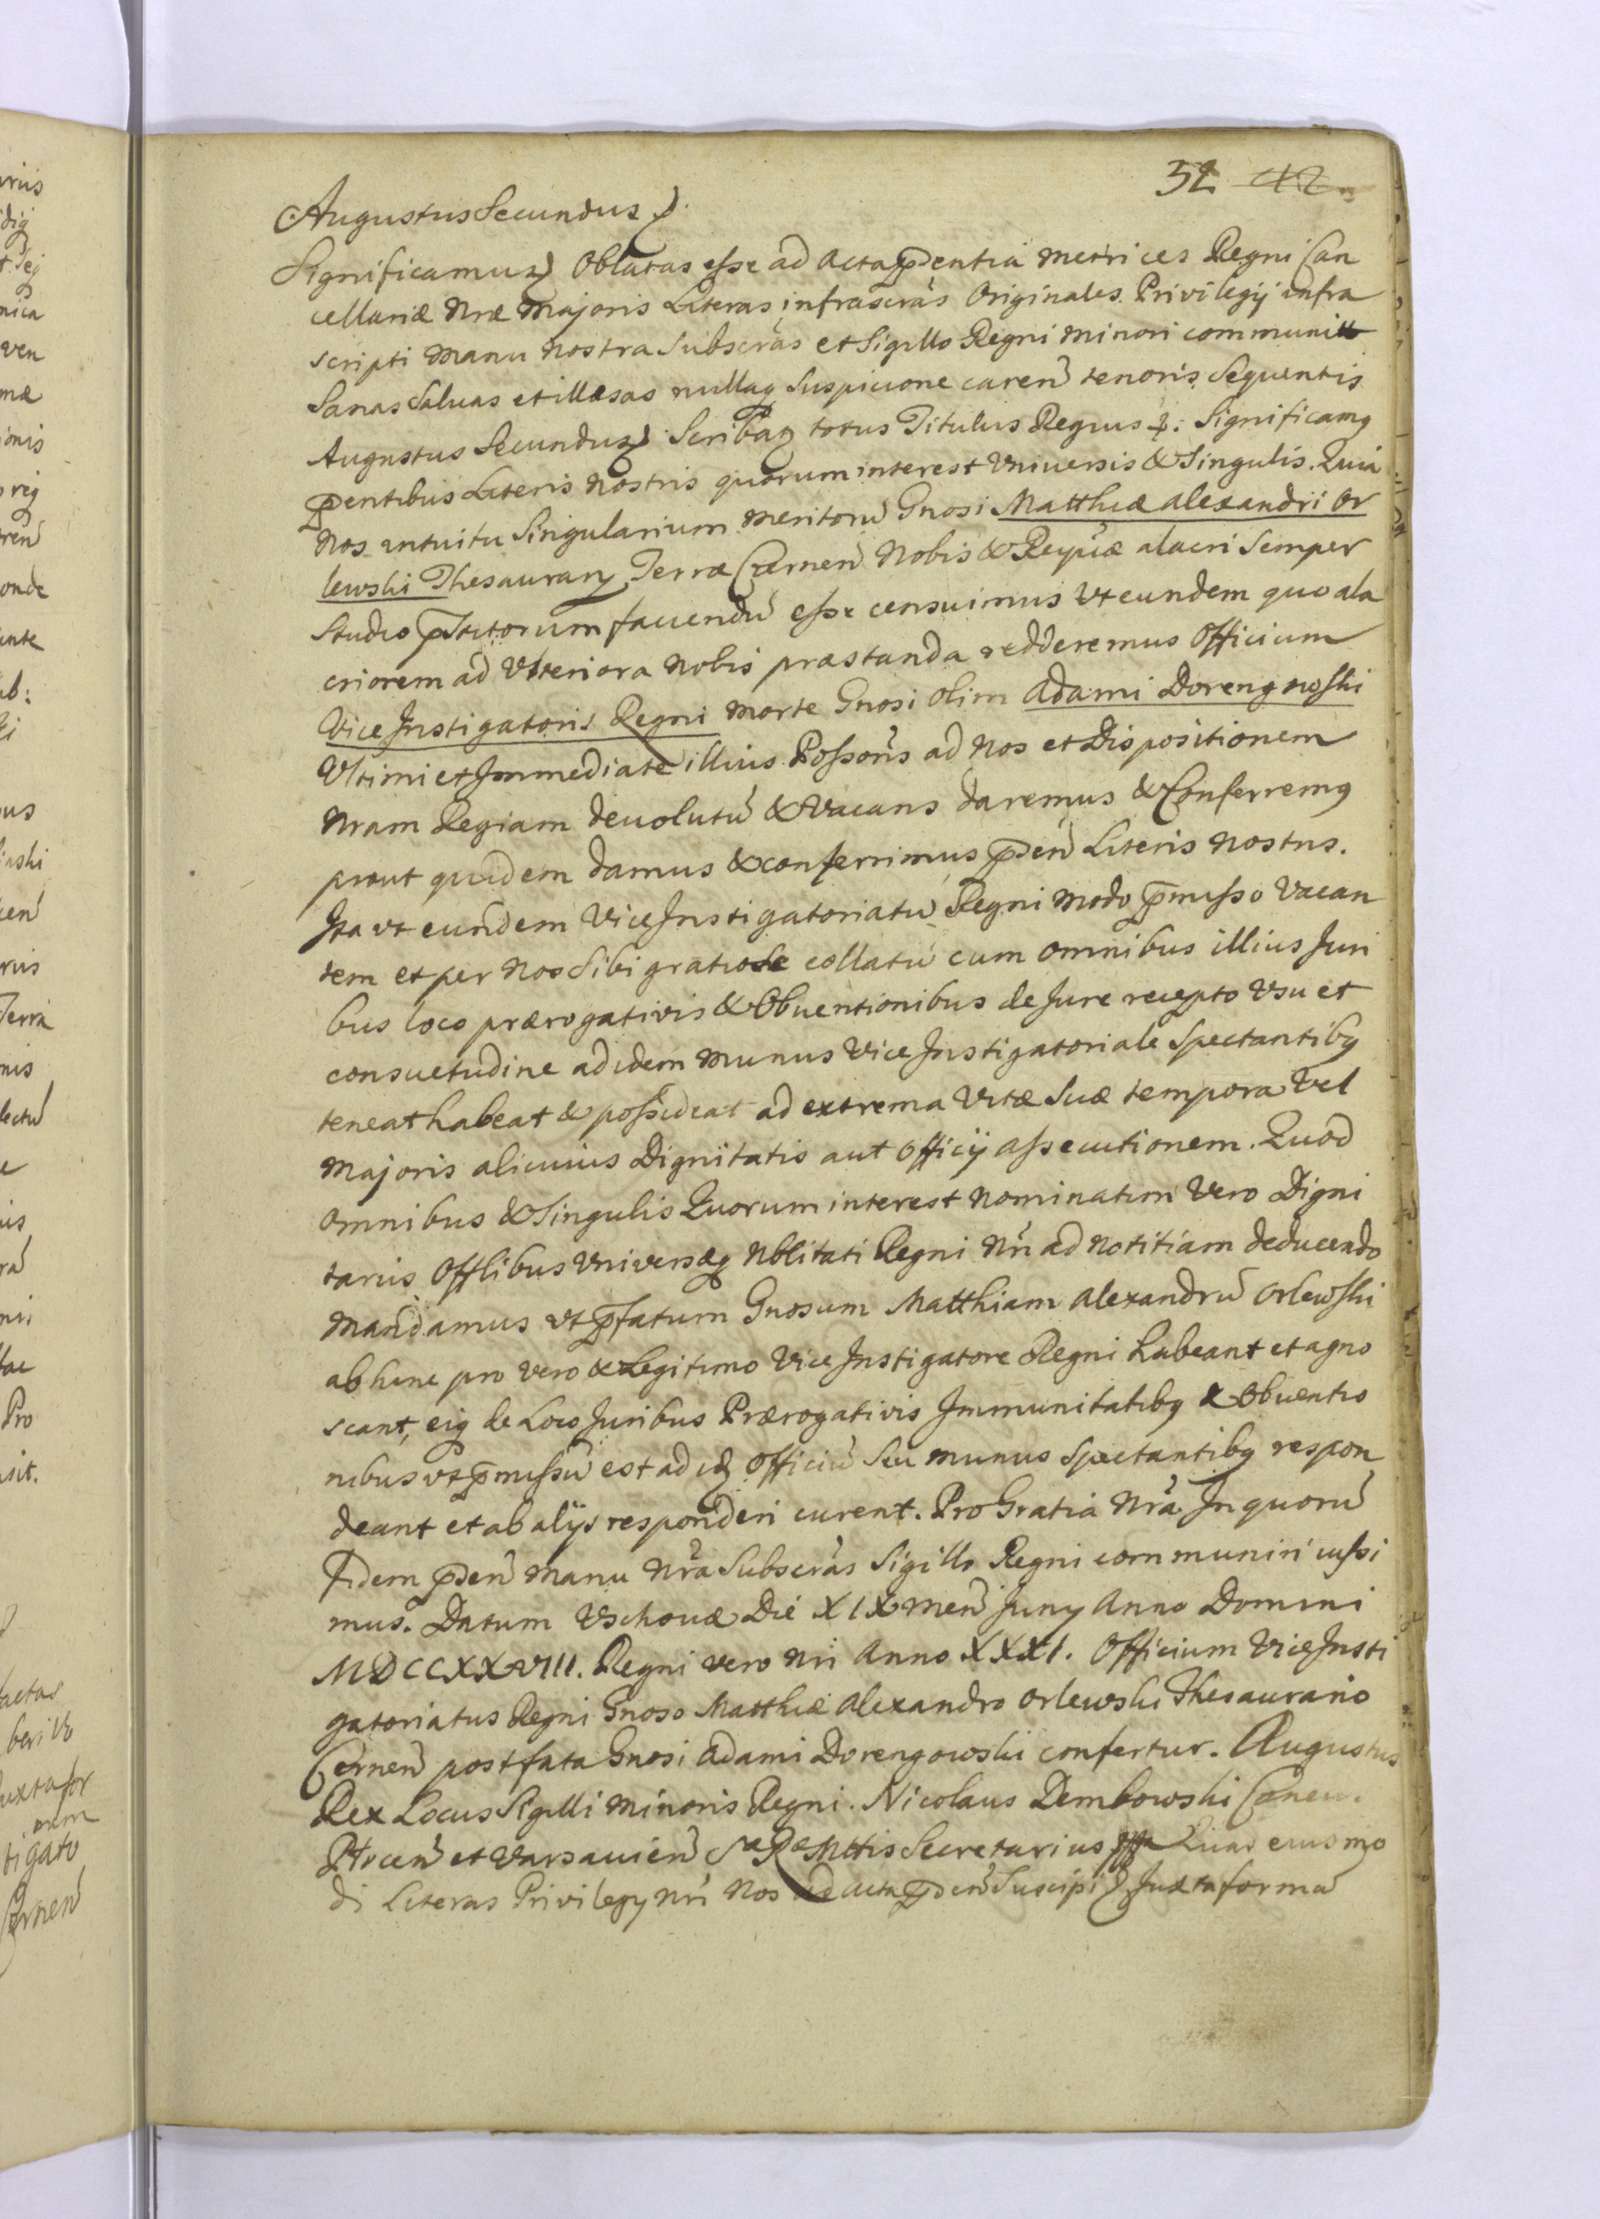 52 42
Augustus Secundus
Significamus Oblatas esse ad Acta pñdentia metrices Regni Can
cellariæ Nræ Majoris Literas infrascrãs Originales Privilegij infra
scripti manu nostra Subscrãs et Sigillo Regni minori communitt
Sanas Salvas et illæsas nullaq Suspicione caren̄ tenoris Sequentis
Augustus Secundus Scribaq totus Titulus Regius Significamq
pñtibus Literis Nostris quorum interest Vniversis & Singulis. Quia
Nos intuitu Singularium meritorũ Gnosi Matthiæ Alexandri Or
lewski Thesaurarij Terræ Czernen̄ Nobis & Reipũcæ alacri Semper
Studio pstitorum favendũ esse censuimus Vt eundem quo ala
criorem ad Vlteriora Nobis præstanda redderemus Officium
Vice Instigatoris Regni morte Gnosi olim Adami Dorengowski
Vltimi et Immediate illius Possoris ad Nos et Dispositionem
Nram Regiam devolutũ & Vacans daremus & Conferremq
prout quidem damus & conferrimus pñden̄ Literis Nostris.
Ita vt eundem Vice Instigatoriatũ Regni modo pmisso Vacan
tem et per Nos Sibi gratiose collatũ cum omnibus illius Juri
bus loco prærogativis & Obventionibus de Jure recepto Vsu et
consuetudine ad idem munus Vice Instigatoriale Spectantibq
teneat habeat & possideat ad extrema Vitæ Suæ tempora Vel
Majoris alicuius Dignitatis aut Officij assecutionem. Quod
omnibus & Singulis Quorum interest nominatim Vero Digni
tariis Offlibus Vniversæq Nblitati Regni Nri ad notitiam deducendo
Mandamus vt pfatum Gnosum Matthiam Alexandrũ Orlewski
ab hinc pro vero & Legitimo Vice Instigatore Regni habeant et agno
scant, eiq de Loco Juribus Prærogativis Immunitatibq & Obventio
nibus vt pmissũ est ad id Officiũ Seu munus Spectantibq respon
deant et ab alijs responderi curent. Pro Gratia Nra In quorũ
Fidem pñden̄ manu Nra Subscrãs Sigillo Regni communiri iussi
mus. Datum Vschovæ Die XIX men̄ Junij Anno Domini
MDCCXXVIII. Regni vero Nri Anno XXXI. Officium Vice Insti
gatoriatus Regni Gnoso Matthiæ Alexandro Orlewski Thesaurario
Czernen̄ post fata Gnosi Adami Dorengowski confertur. Augustus
Rex Locus Sigilli Minoris Regni. Nicolaus Dembowski
Plocen̄ et Varsavien̄ S R Mttis Secretarius Quas eiusmo
di Literas Privilegij Nri Nos ad Acta pñden̄ Suscipi Juxta formã